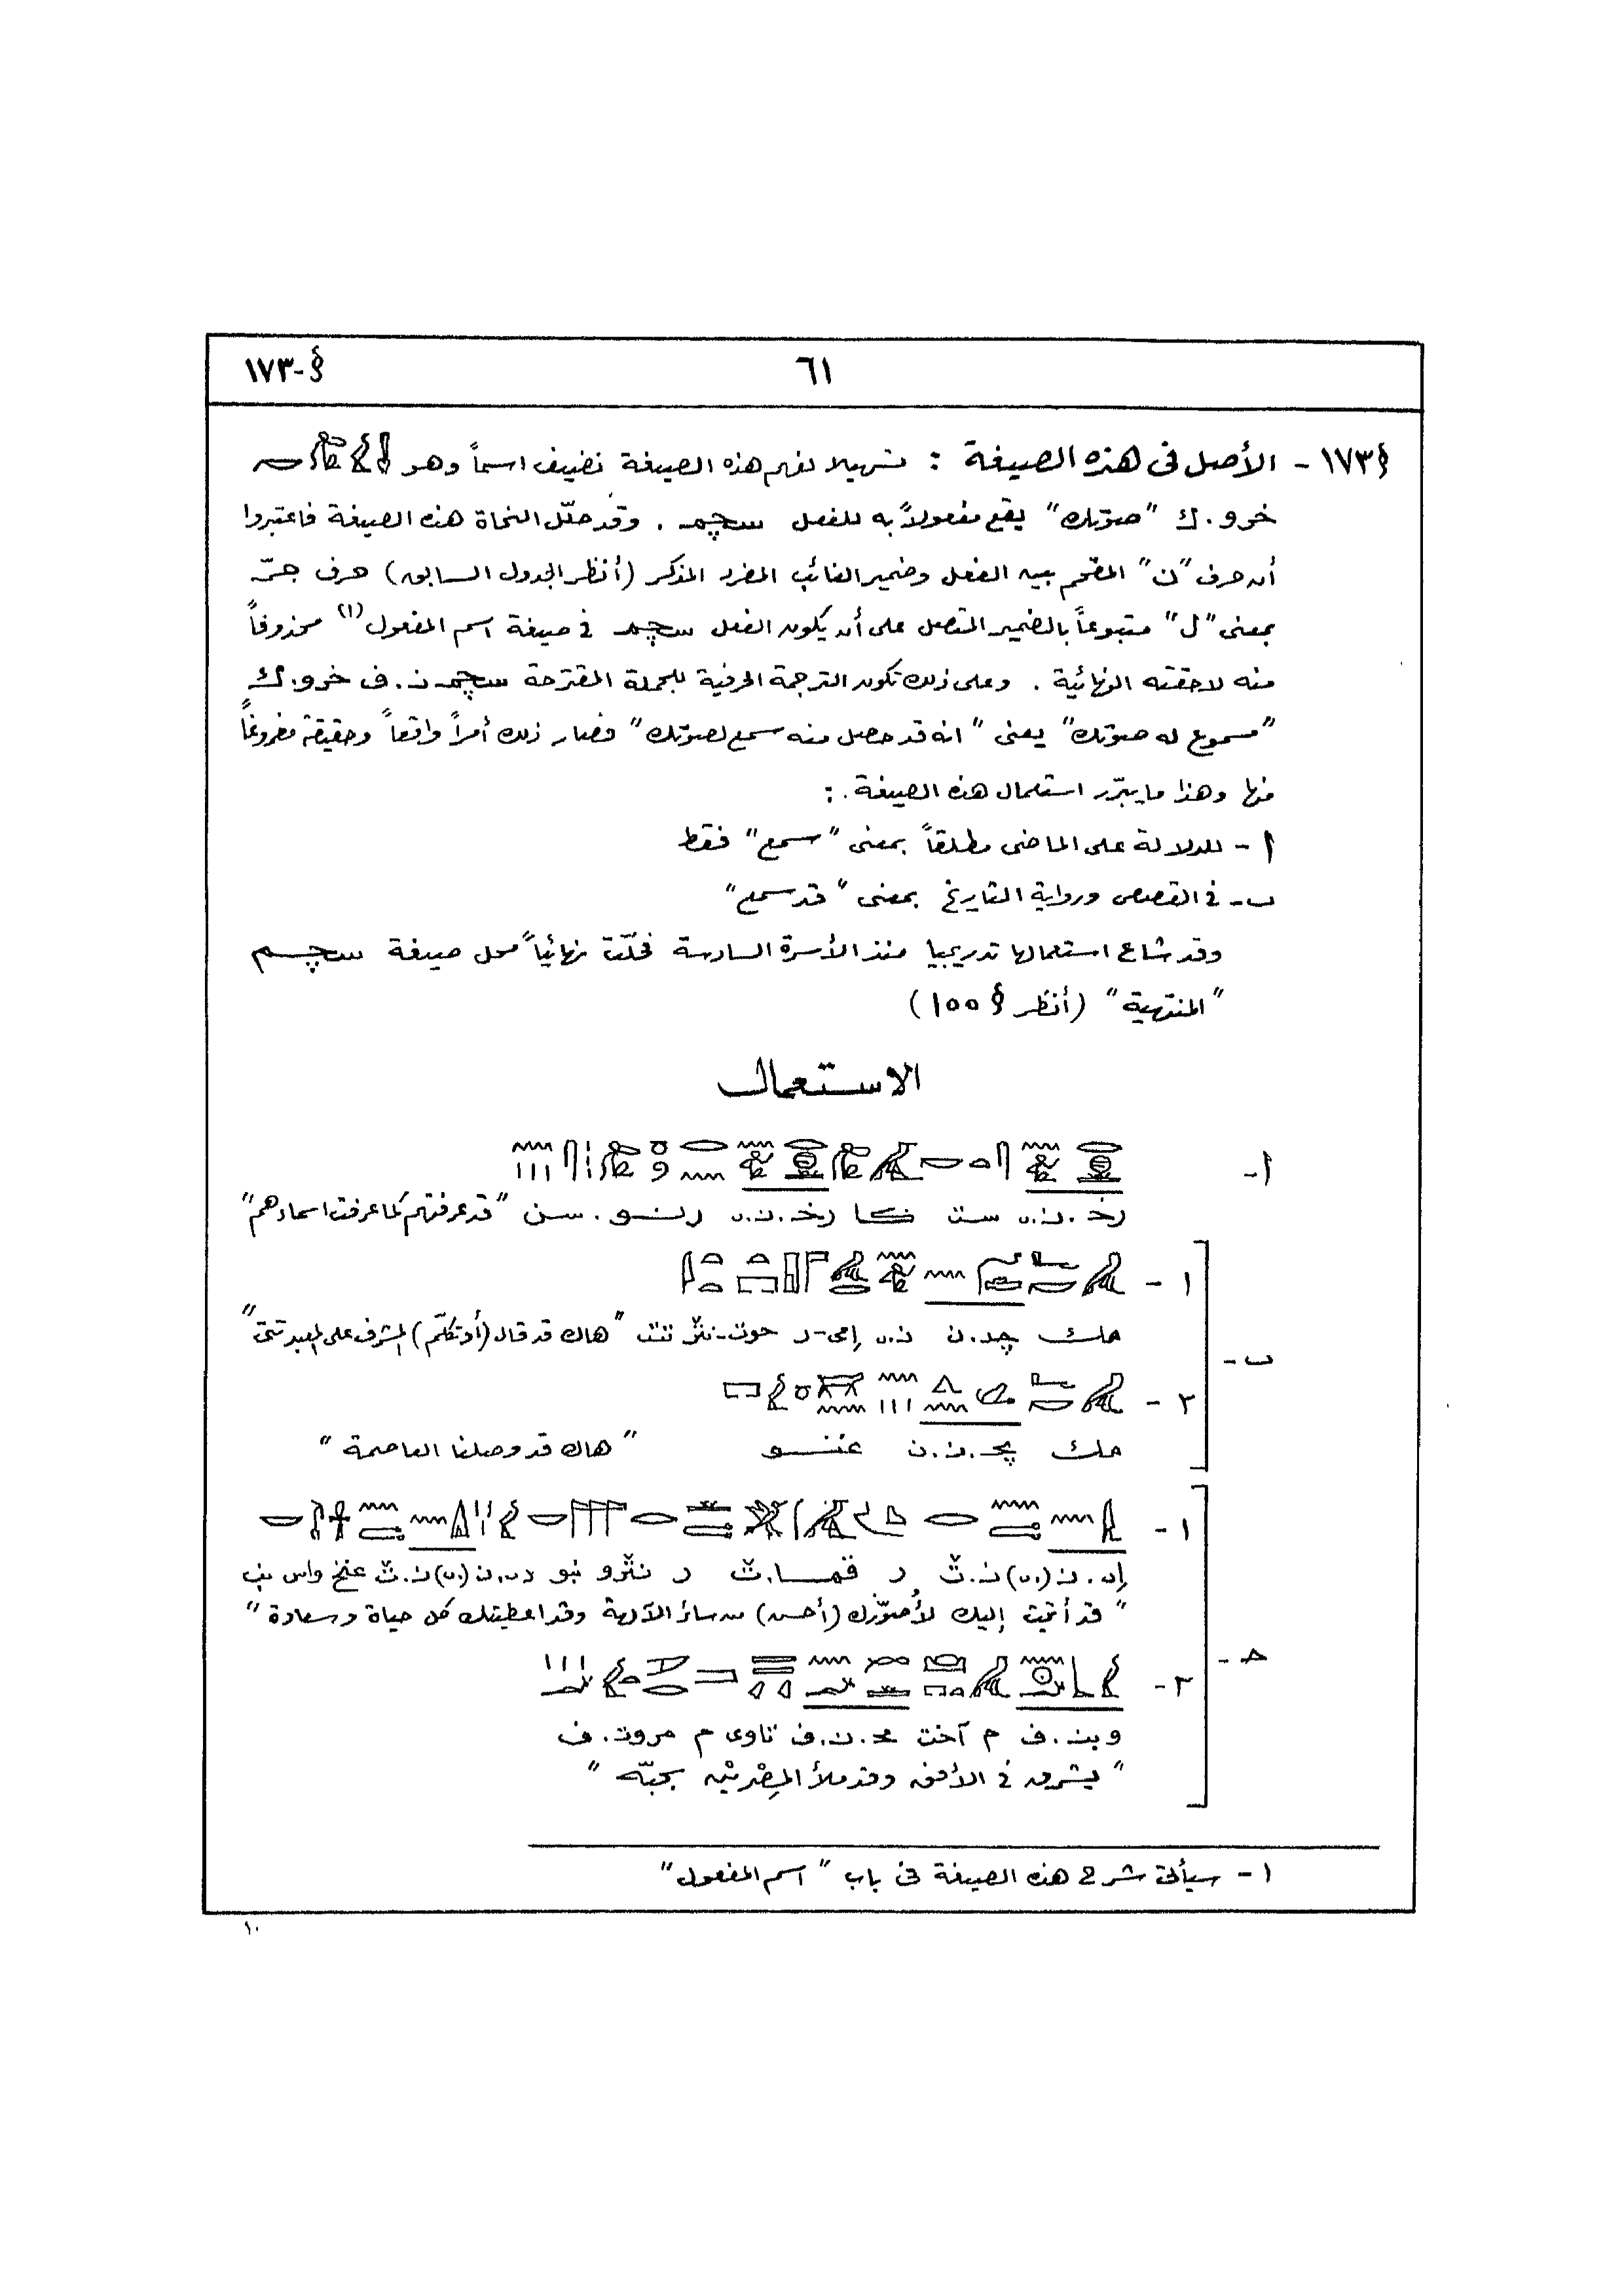 §-١٧٣
٦١
§١٧٣ - الأصل فى هذه الصيغة : تسهيلا لفهم هذه الصيغة نضيف اسماً وهو
خرو.ك "صوتك" يقع مفعولاً به للفعل سچم . وقد حلّل النحاة هذه الصيغة فاعتبروا
أن حرف "ن" المقحم بين الفعل وضمير الغائب المفرد المذكر (أنظر الجدول السابق) حرف جرّ
بمعنى "ل" متبوعاً بالضمير المتصل على أن يكون الفعل سچم فى صيغة اسم المفعول (١) محذوفاً
منه لاحقته النهائية . وعلى ذلك تكون الترجمة الحرفية للجملة المقترحة سچم.ن.ف خرو.ك
"مسموع له صوتك" يعنى "انه قد حصل منه سمع لصوتك" فصار ذلك أمراً واقعاً وحقيقة مفروغاً
منها وهذا ما يبرّر استعمال هذه الصيغة :
أ - للدلالة على الماضى مطلقاً بمعنى "سمع" فقط
ب - فى القصص ورواية التاريخ بمعنى "قد سمع"
وقد شاع استعمالها تدريجيا منذ الأسرة السادسة فحلّت نهائياً محل صيغة سچم
"المنتهية" (أنظر § ١٥٥)
الاستعمال
أ -
رخ.ن.ى ست كا رخ.ن.ى رنو.سن "قد عرفتهم كما عرفت اسماءهم"
ب -
١ -
مك چد.ن ن.ى إمى-ر حوت-نثر تتى "هاك قد قال (أو تكلّم) المشرف على المعبد تتى"
٢ -
مك پح.ن.ن غنو "هاك قد وصلنا العاصمة"
ح -
١ -
إى.ن(.ى) ن.ث ر قما.ث ر نثرو نبو دى.ن(.ى) ن.ث عنخ واس نب
"قد أتيت إليك لأصوّرك (أحسن) من سائر الآلهة وقد اعطيتك كل حياة وسعادة"
٢ -
وبن.ف م آخت مح.ن.ف تاوى م مروت.ف
"يشرق فى الأفق وقد ملأ المِصْرَيْن بحبّه"
١ - سيأتى شرح هذه الصيغة فى باب "اسم المفعول"
١٠